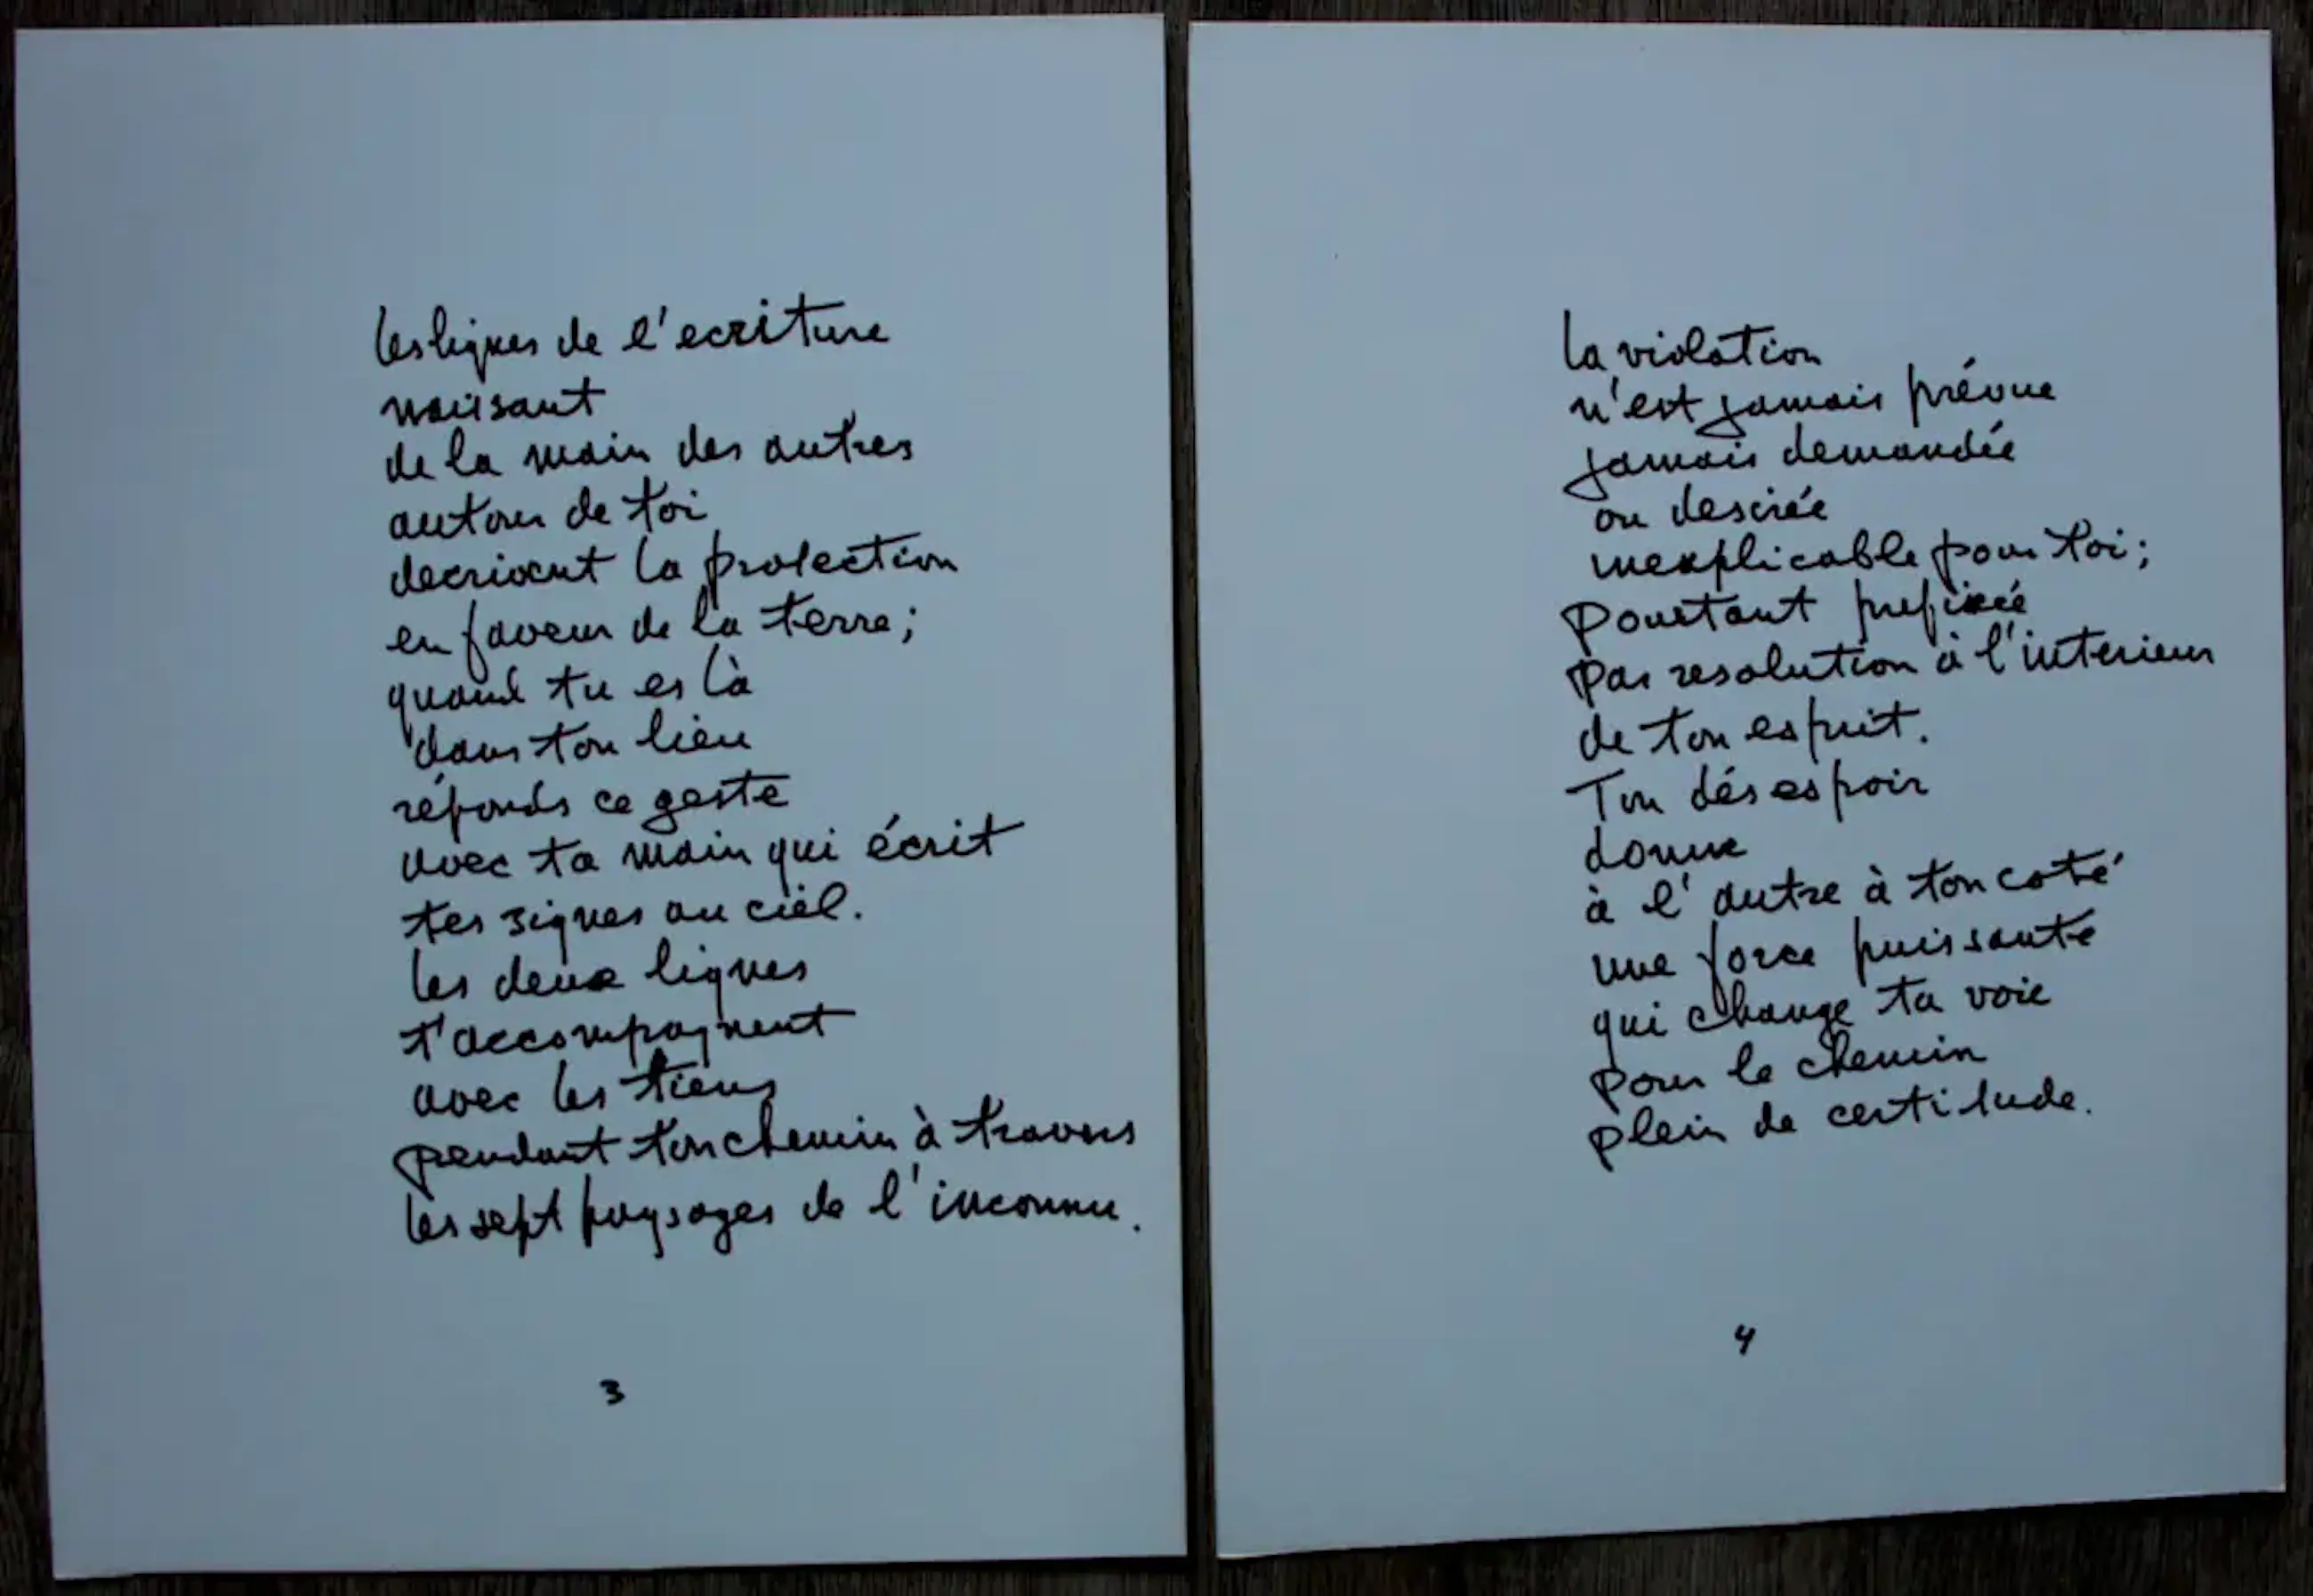 les lignes de l'ecriture
naissant
de la main des autres
autour de toi
decrivent la protection
en faveur de la terre;
quand tu es là
dans ton lieu
réponds ce geste
avec ta main qui écrit
tes signes au ciel.
les deux lignes
t'accompagnent
avec les tiens
pendant ton chemin à travers
les sept paysages de l'inconnu.
3
la violation
n'est jamais prévue
jamais demandée
ou desirée
inexplicable pour toi;
pourtant prefixée
par resolution à l'interieur
de ton esprit.
Ton désespoir
donne
à l'autre à ton coté
une force puissante
qui change ta voie
pour le chemin
plein de certitude.
4